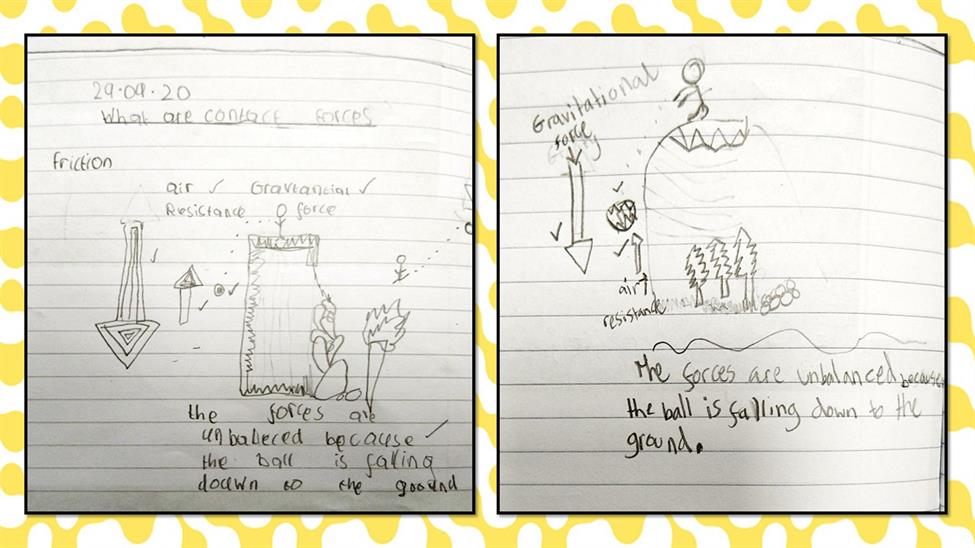 29.09.20
What are contact forces
friction
air Gravtancial
Resistance force
the forces are
unbalenced because
the ball is falling
doawn to the goound
Gravitational
force
air
resistance
The forces are unbalanced because
the ball is falling down to the
ground.